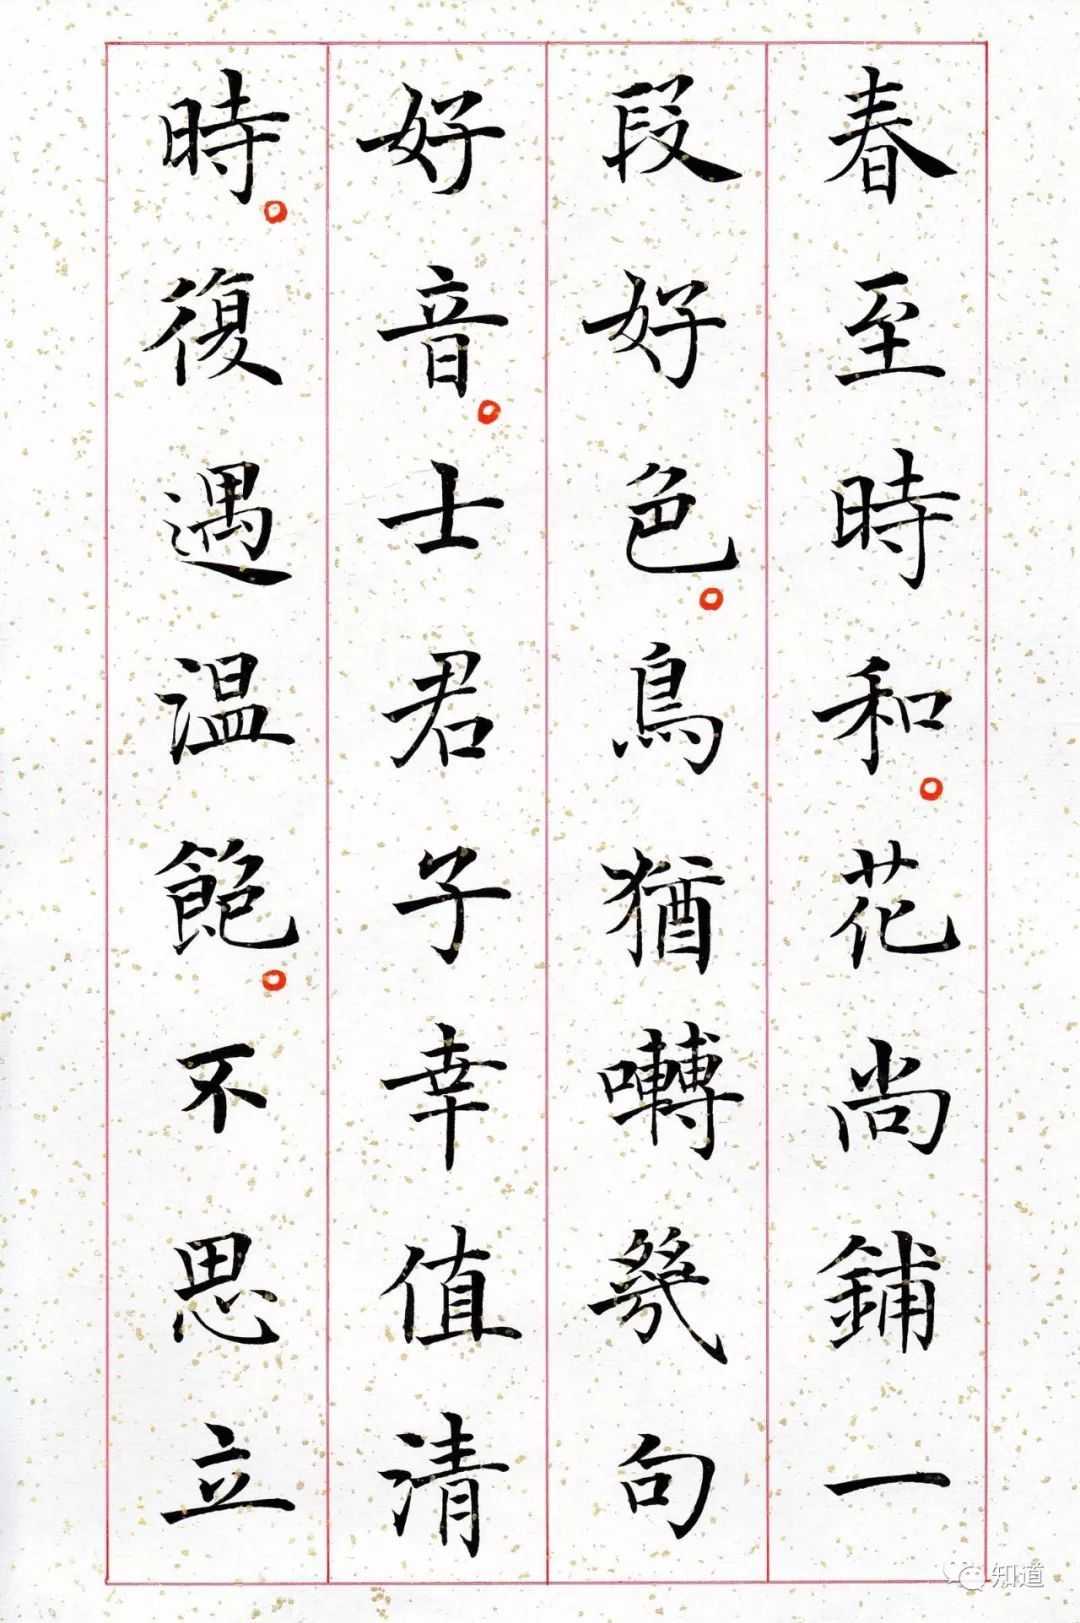 春至時和。花尚鋪一
段好色。鳥猶囀幾句
好音。士君子幸值清
時。復遇溫飽。不思立
知道